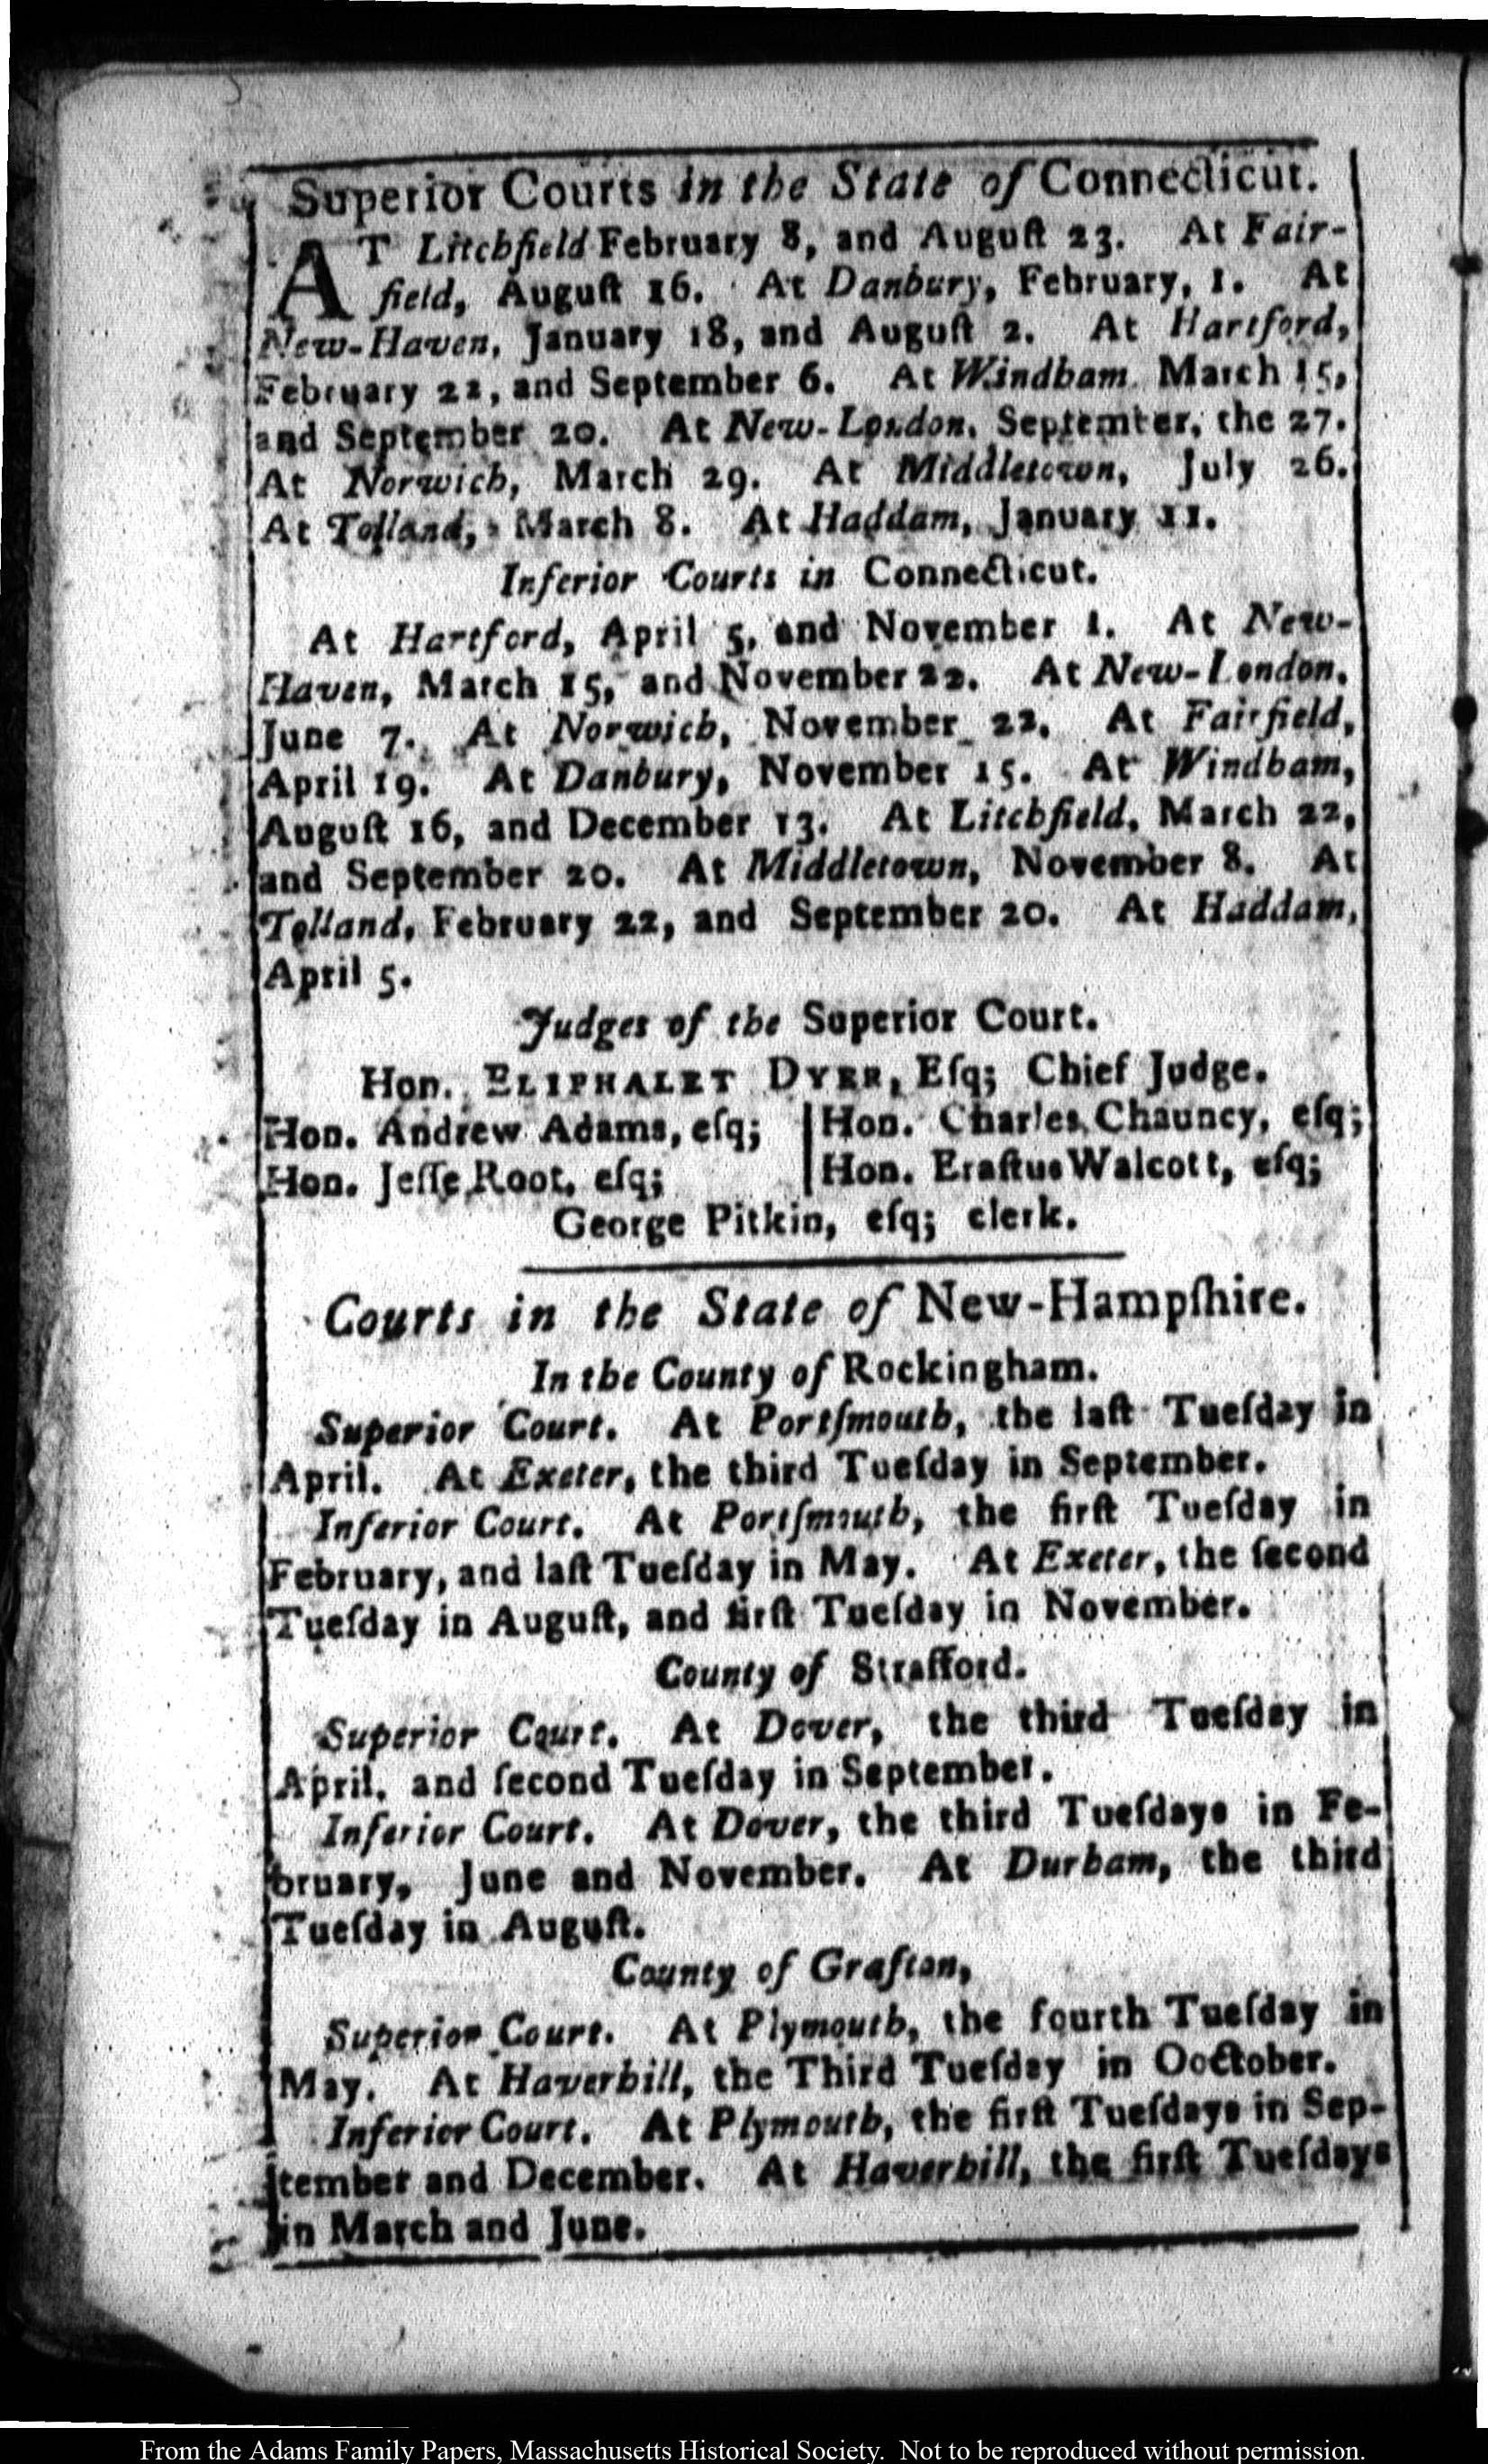 Superior Courts in the State of Connecticut.
AT Litchfield February 8, and Auguſt 23. At Fair-
field, Auguſt 16. At Danbury, February, 1. At
New-Haven, January 18, and Auguſt 2. At Hartford,
February 22, and September 6. At Windham March 15,
and September 20. At New-London, September, the 27.
At Norwich, March 29. At Middletown, July 26.
At Tolland, March 8. At Haddam, January 11.
Inferior Courts in Connecticut.
At Hartford, April 5, and November 1. At New-
Haven, March 15, and November 22. At New-London,
June 7. At Norwich, November 22. At Fairfield,
April 19. At Danbury, November 15. At Windham,
Auguſt 16, and December 13. At Litchfield, March 22,
and September 20. At Middletown, November 8. At
Tolland, February 22, and September 20. At Haddam,
April 5.
Judges of the Superior Court.
Hon. ELIPHALET DYER, Eſq; Chief Judge.
Hon. Andrew Adams, eſq; Hon. Charles Chauncy, eſq;
Hon. Jeſſe Root, eſq; Hon. Eraſtus Walcott, eſq;
George Pitkin, eſq; clerk.
Courts in the State of New-Hampſhire.
In the County of Rockingham.
Superior Court. At Portſmouth, the laſt Tueſday in
April. At Exeter, the third Tueſday in September.
Inferior Court. At Portſmouth, the firſt Tueſday in
February, and laſt Tueſday in May. At Exeter, the ſecond
Tueſday in Auguſt, and firſt Tueſday in November.
County of Strafford.
Superior Court. At Dover, the third Tueſday in
April, and ſecond Tueſday in September.
Inferior Court. At Dover, the third Tueſdays in Fe-
bruary, June and November. At Durham, the third
Tueſday in Auguſt.
County of Grafton,
Superior Court. At Plymouth, the fourth Tueſday in
May. At Haverhill, the Third Tueſday in Ooctober.
Inferior Court. At Plymouth, the firſt Tueſdays in Sep-
tember and December. At Haverhill, the firſt Tueſdays
in March and June.
From the Adams Family Papers, Massachusetts Historical Society. Not to be reproduced without permission.